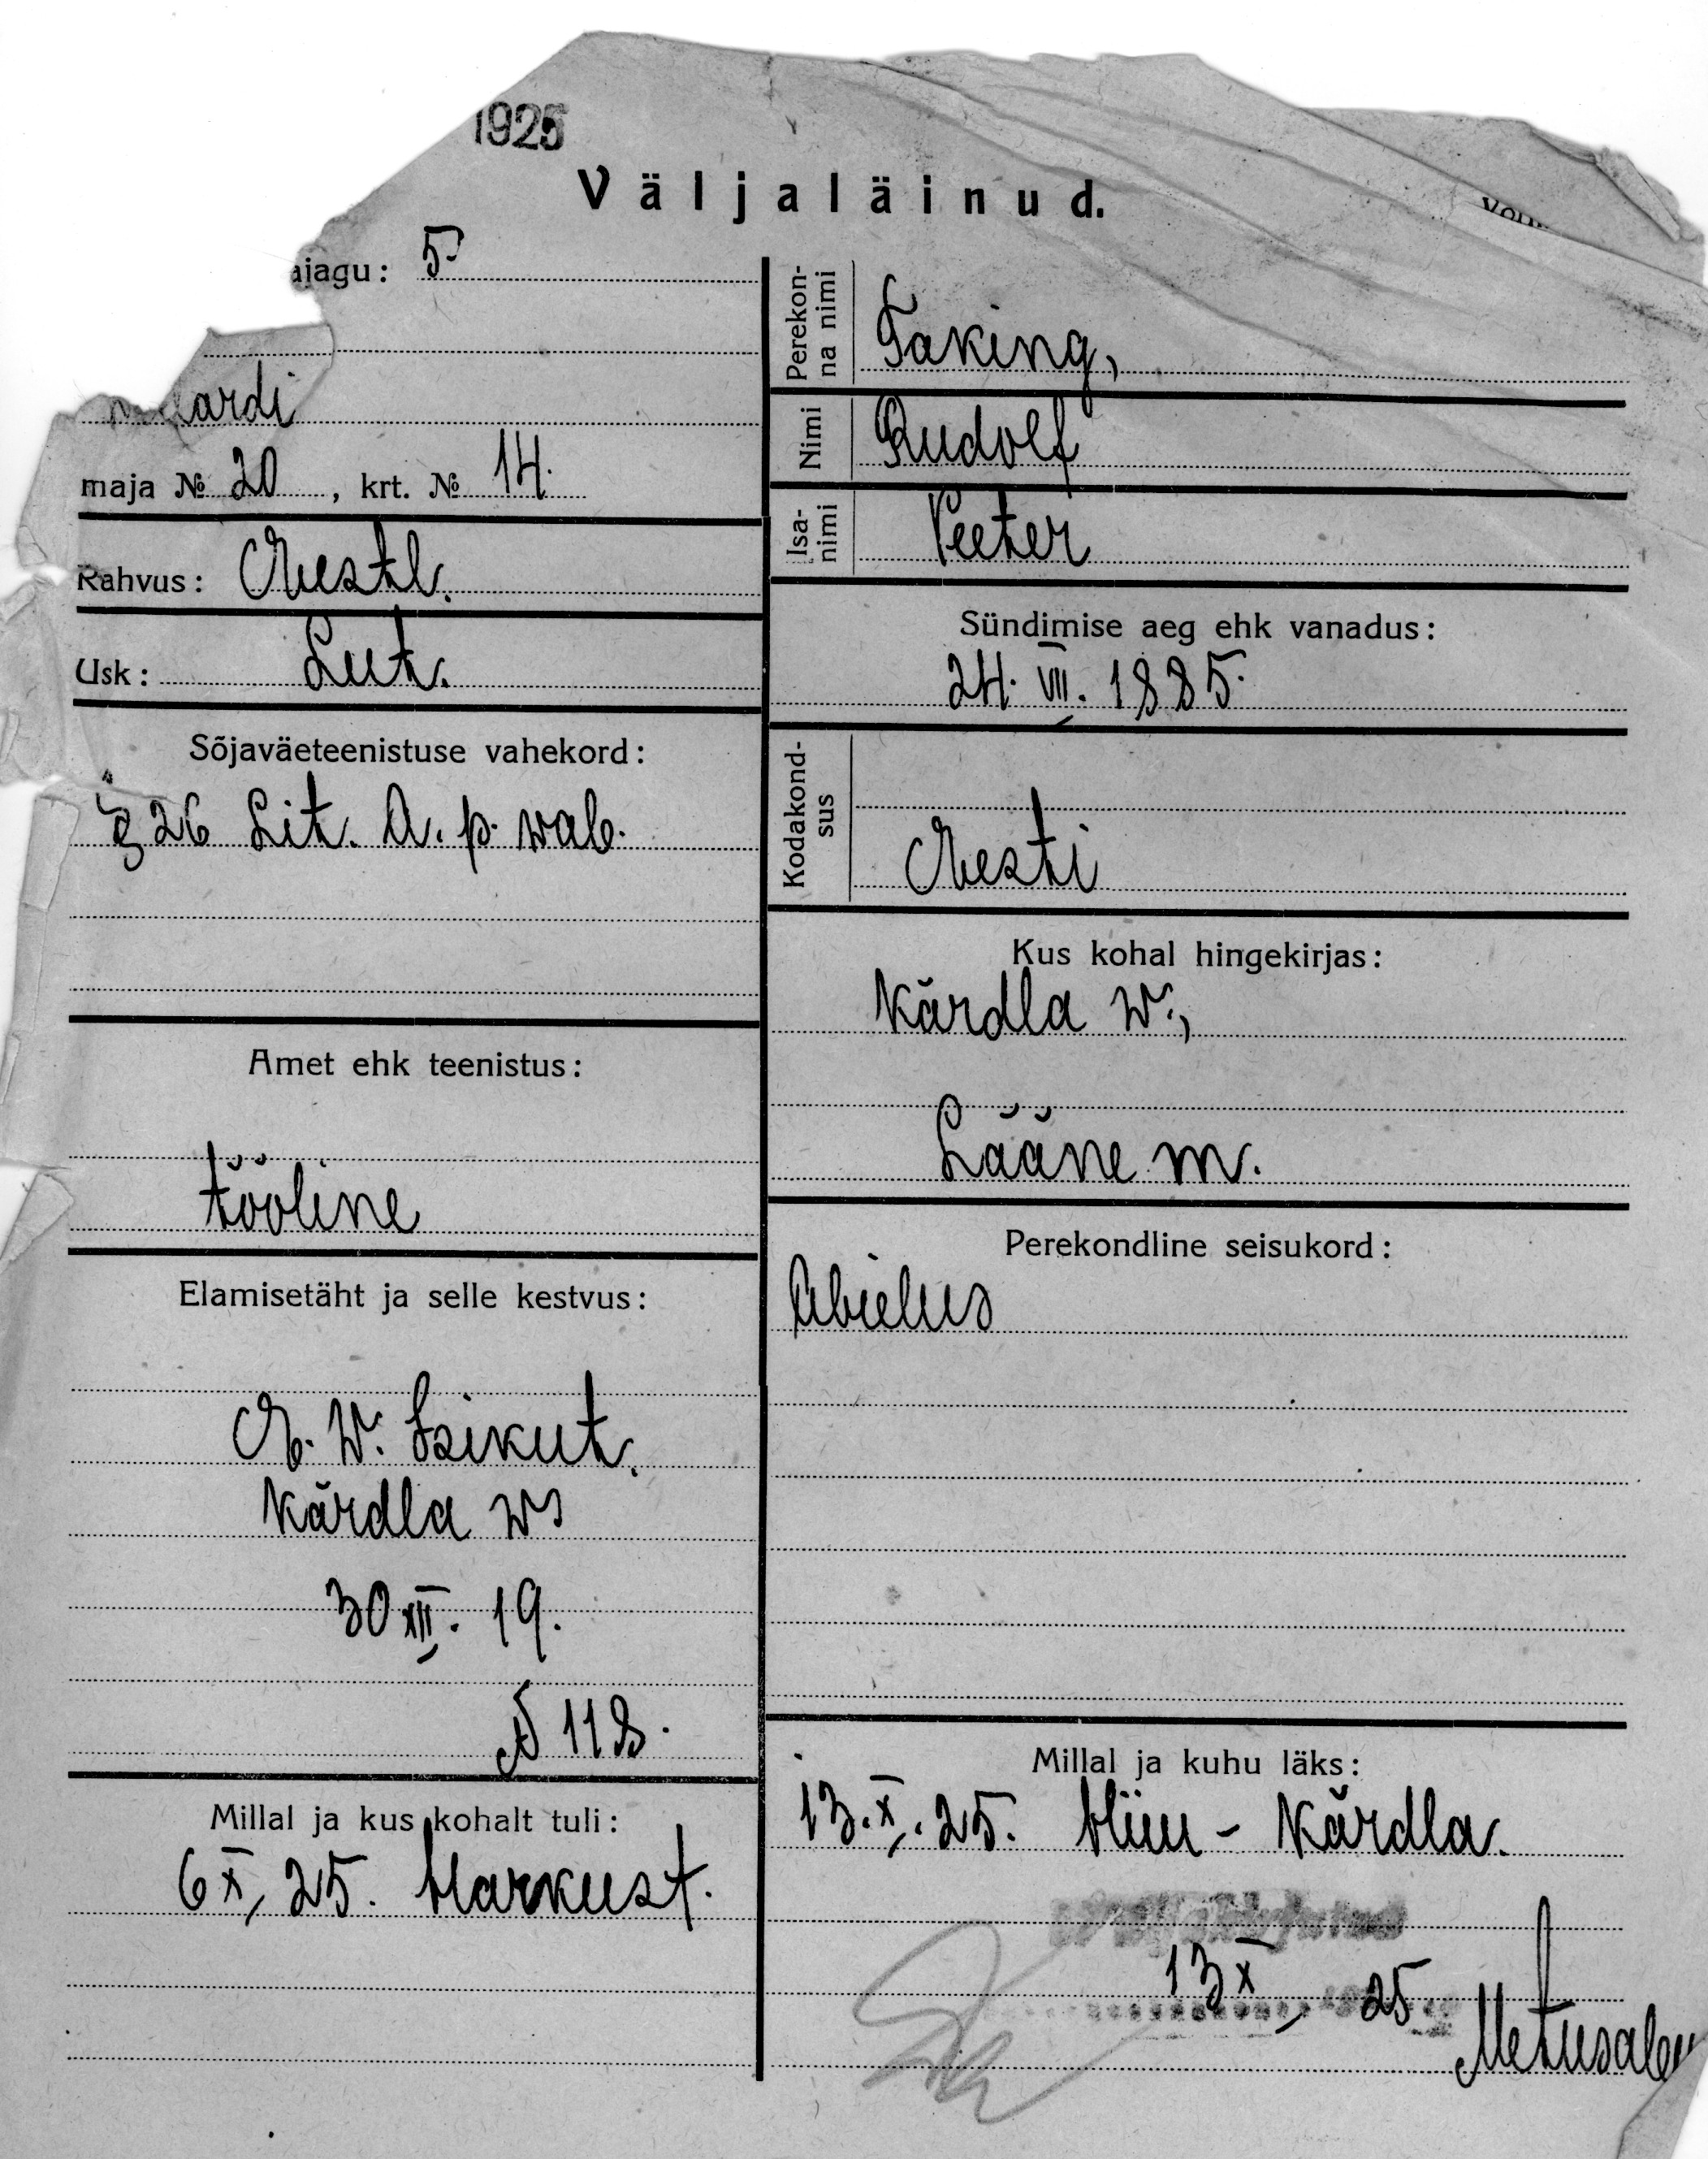 1925
Väljaläinud.
ajagu: 5
ardi
maja № 20, krt. № 14.
Rahvus: Eestl.
Usk: Lut.
Sõjaväeteenistuse vahekord:
§ 26 Lit. A. p. wab.
Amet ehk teenistus:
tööline
Elamisetäht ja selle kestvus:
E. W. Isikut.
Kärdla w
30 XII. 19.
№ 118.
Millal ja kus kohalt tuli:
6 X, 25. Harkust.
Perekon-
na nimi
Taking,
Nimi
Rudolf
Isa-
nimi
Peeter
Sündimise aeg ehk vanadus:
24. VII. 1885.
Kodakond-
sus
Eesti
Kus kohal hingekirjas:
Kärdla w.,
Lääne m.
Perekondline seisukord:
Abielus
Millal ja kuhu läks:
13. X. 25. Hiiu - Kärdla.
13 X 25